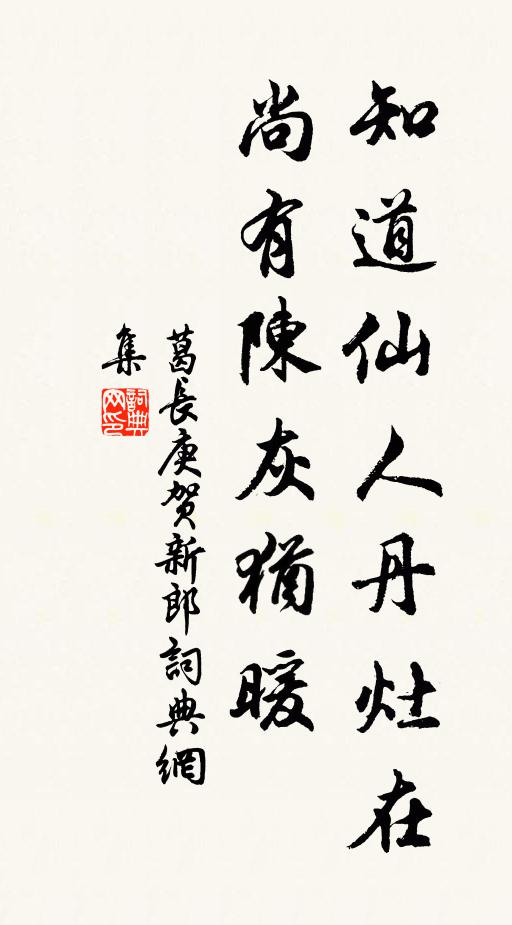 知道仙人丹灶在
尚有陳灰猶暖
葛長庚贺新郎詞典網
集
詞典
网印